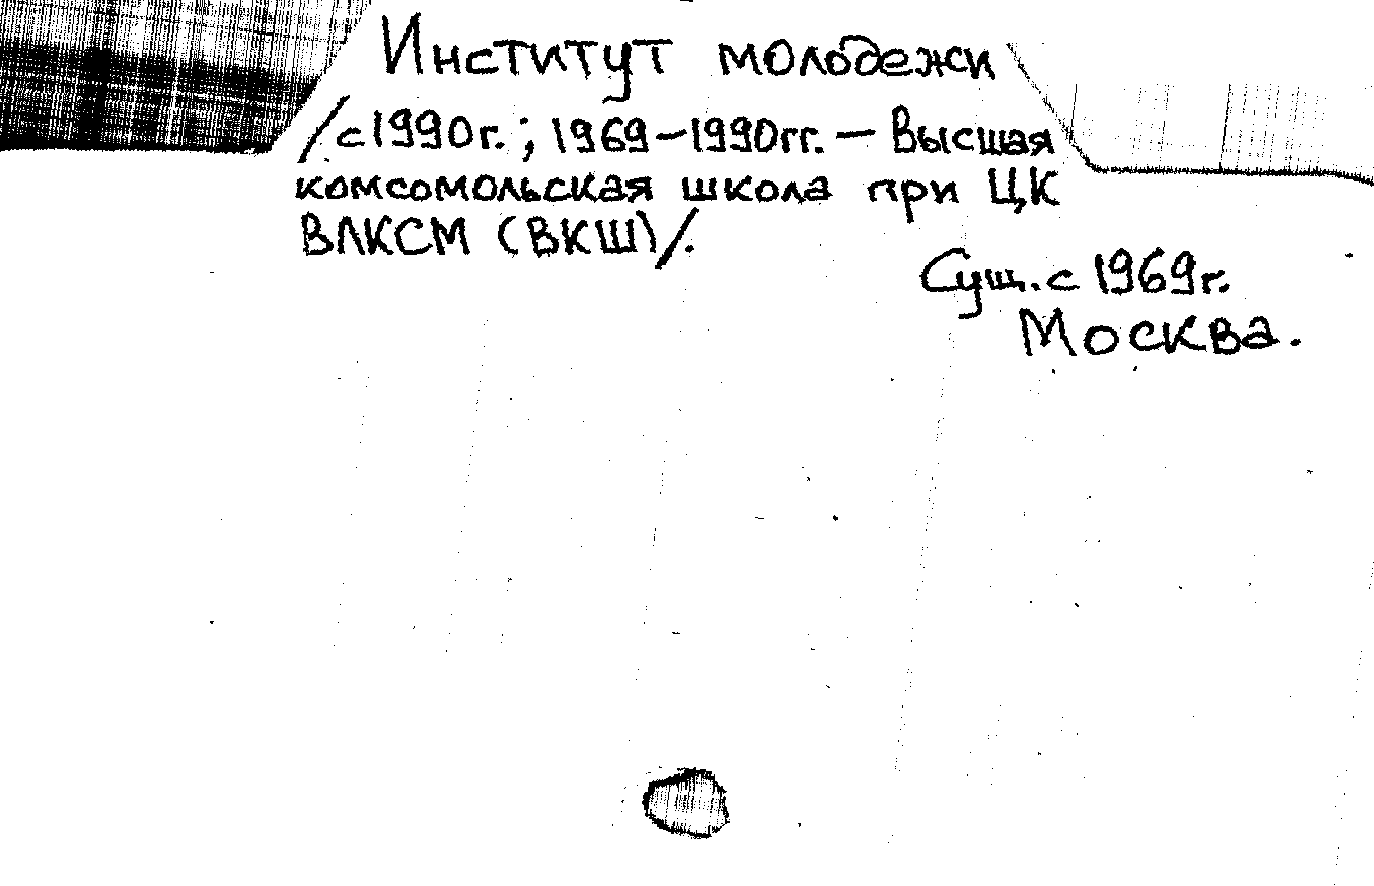 Институт молодежи
/с 1990г.; 1969–1990гг. – Высшая
комсомольская школа при ЦК
ВЛКСМ (ВКШ)/.
Сущ. с 1969г.
Москва.